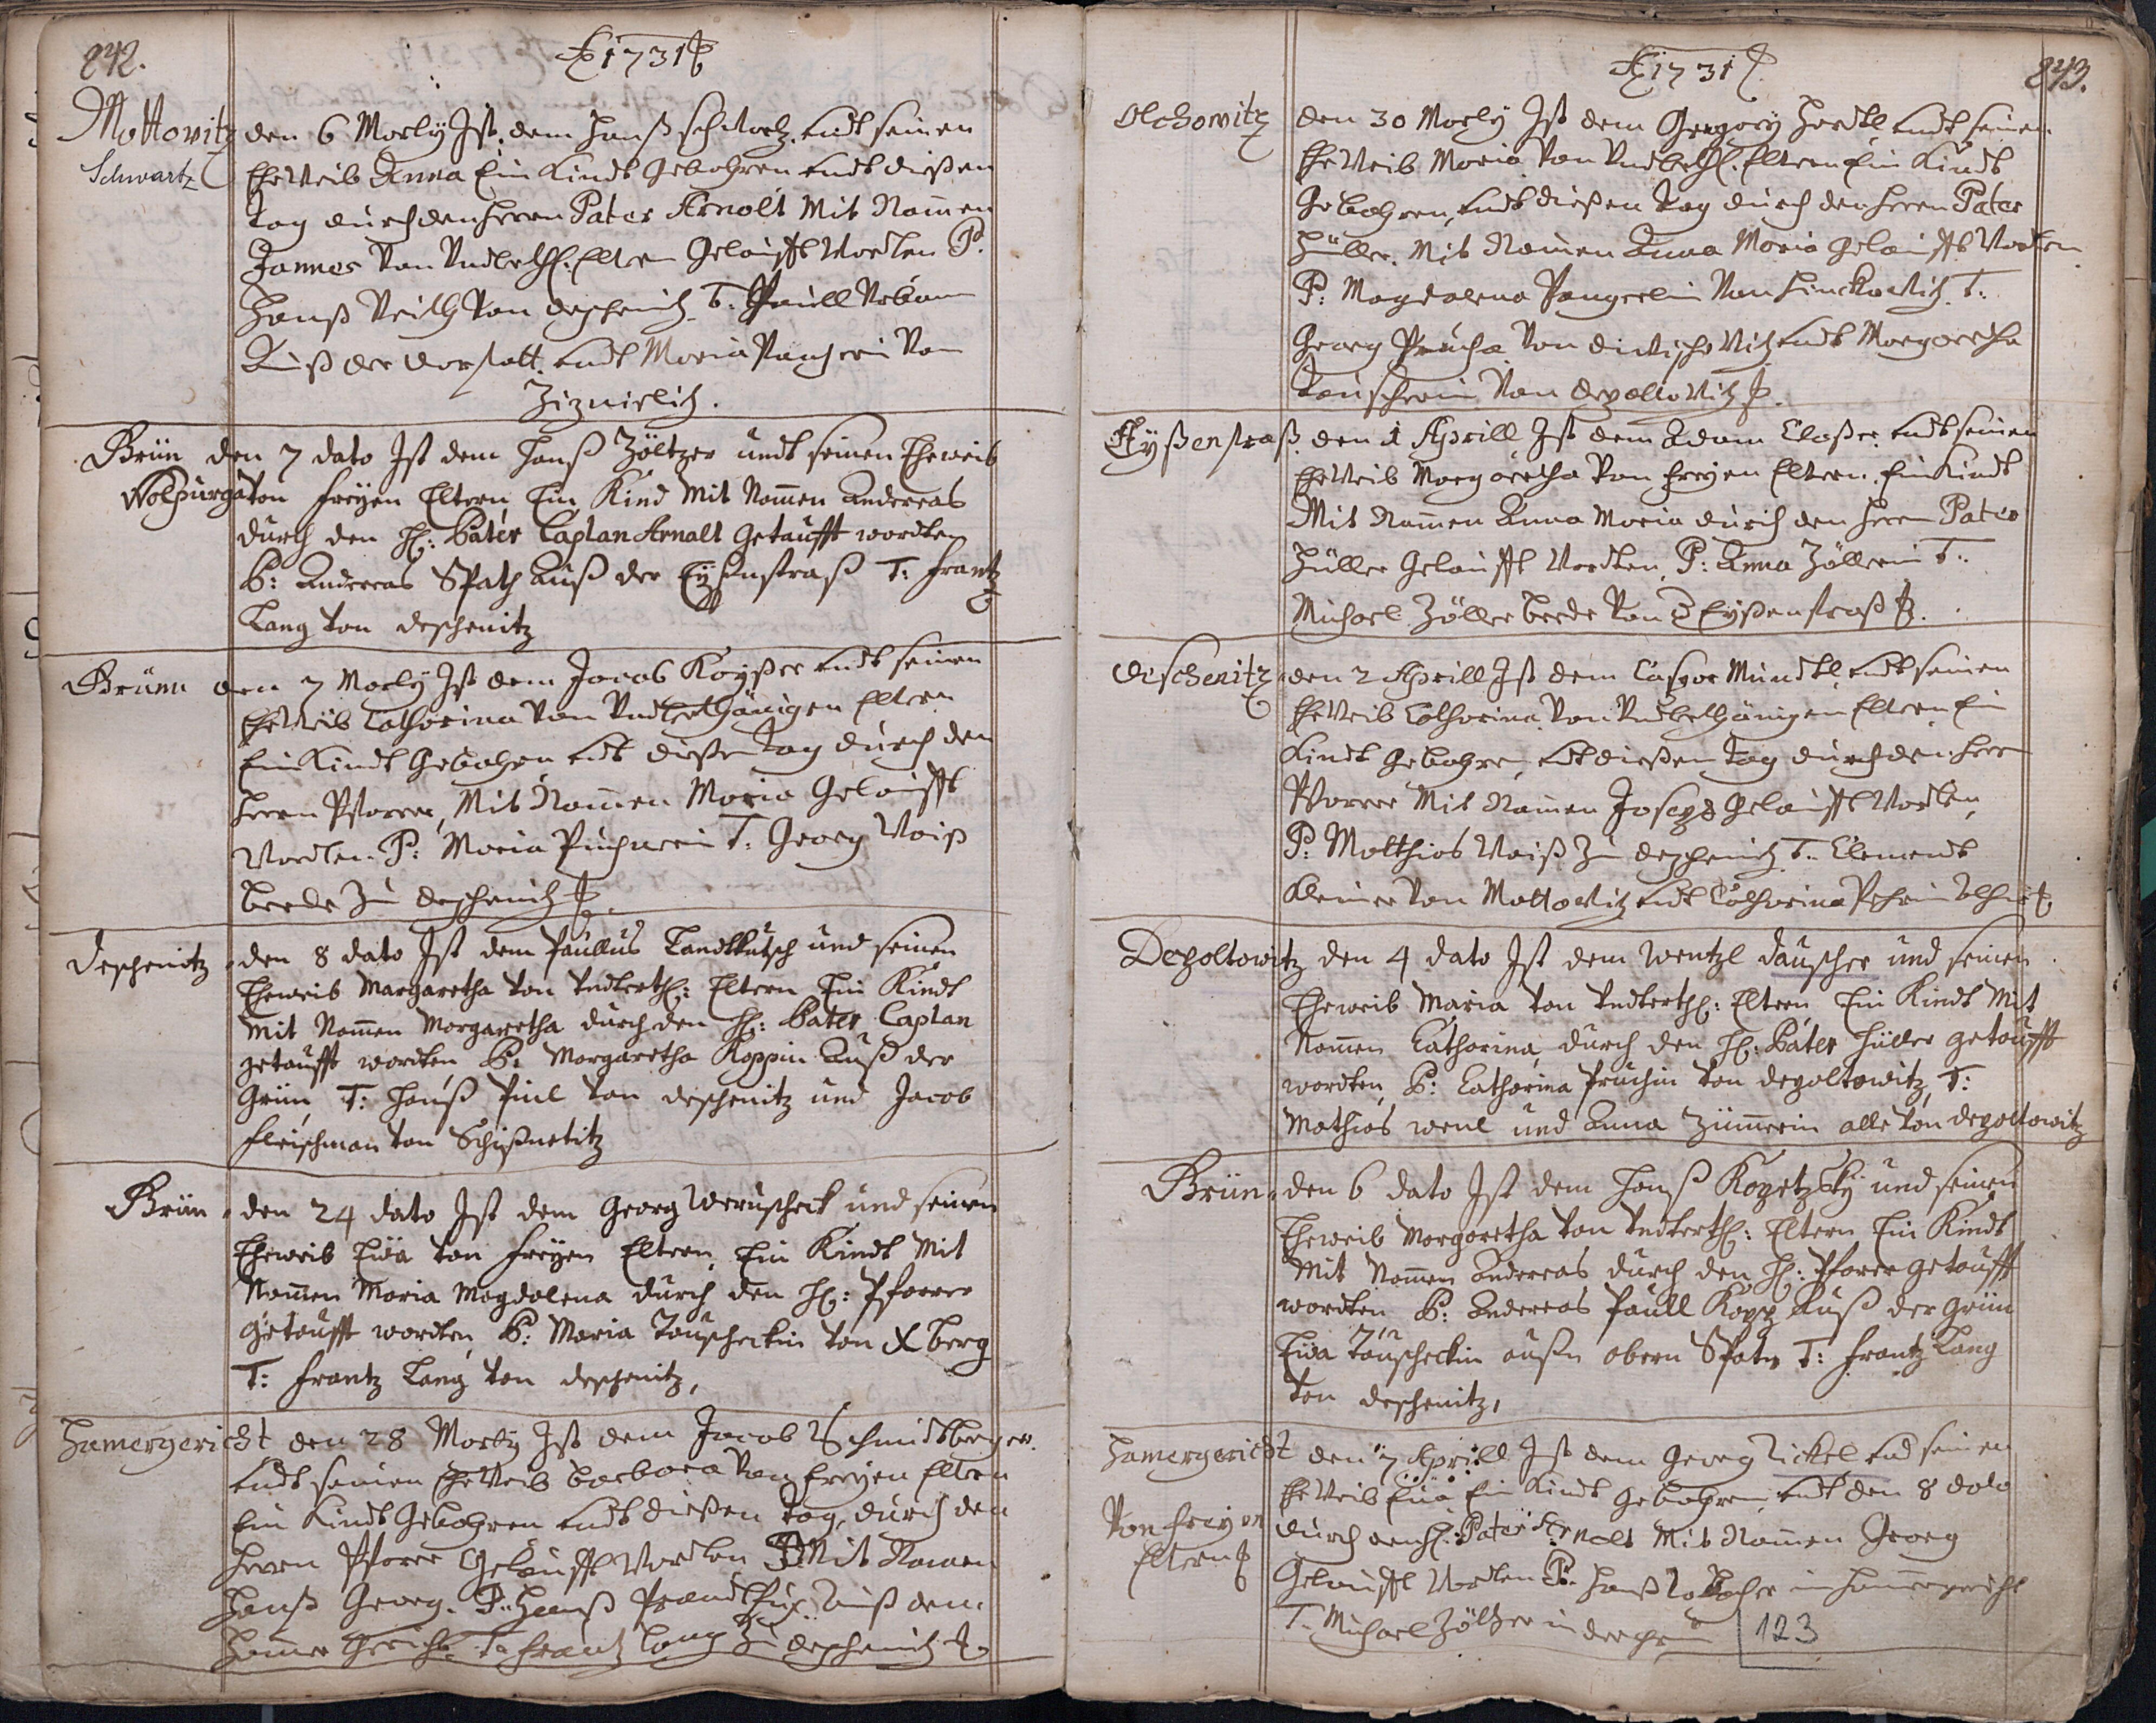 842.
A 1731
Mottowitz den 6 Marty Ist dem Hanß Schwartz undt seinen
Schwartz EheWeib Anna Ein Kindt Gebohren undt dießen
Tag durch den Herrn Pater Arnolt Mit Namen
Jannes Von Undterth: Eltern Getaufft Wordten P:
Hanß Veith Von deschenitz T: Paull Urban
Auß der Vorstatt undt Maria
Ziznietitz.
Brün den 7 dato Ist dem Hanß Zöltzer undt seinen Eheweib
Wolpurga Von freyen Eltern Ein Kind Mit Namen Andereas
durch den H: Pater Caplan Arnalt getaufft wordten
P: Andereas Spath Auß der Eyßnstraß T: Frantz
Lang Von deschenitz
Brünn den 7 Marty Ist dem Jacob Koysser undt seinen
EheWeib Catharina Von Undterthänigen Eltern
Ein Kindt Gebohren undt dießen Tag durch den
Herrn Pfarrer, Mit Namen Maria Getaufft
Wordten P: Maria Puchnerin T: Georg Weiß
beede Zu deschenitz
Deschenitz den 8 dato Ist dem Paullus Landtkutsch und seinen
Eheweib Margaretha Von Undterth: Eltern Ein Kindt
Mit Namen Margaretha durch den H: Pater Caplan
getaufft wordten P: Margaretha Koppin Auß der
Grün T: Hanß Piul Von deschenitz und Jacob
Fleischman Von Schißnetitz
Brün den 24 dato Ist dem Georg Weruscheck und seinen
Eheweib Eva Von freyen Eltern Ein Kindt Mit
Namen Maria Magdalena durch den H: Pfarrer
getaufft wordten P: Maria Tauscheckin Von X berg
T: Frantz Lang Von deschenitz,
Hamergericht den 28 Marty Ist dem Jacob Schmidtberger
undt seinen EheWeib Barbara Von freyen Eltern
Ein Kindt Gebohren undt dießen Tag, durch den
Herrn Pfarer Getaufft Wordten Mit Namen
Hanß Georg. P: Hanß Auß dem
Hamer Gericht T: Frantz Lang Zu deschenitz
A 1731
843.
Olchowitz den 30 Marty Ist dem Gregory Hardtl undt seinen
EheWeib Maria Von Undterth: Eltern Ein Kindt
Gebohren undt dießen Tag durch den Herrn Pater
Hüller. Mit Namen Anna Maria getaufft Wordten
P: Magdalena Pangerlin Von Hinckowitz T:
Georg Prucha Von diwischowitz undt Margaretha
Tauscherin Von depoltowitz
Eyßenstraß den 1 Aprill Ist dem Adam Claßer undt seinen
EheWeib Margaretha Von freyen Eltern Ein Kindt
Mit Namen Anna Maria durch den Herrn Pater
Hüller Getaufft Wordten P: Anna Zöllerin T:
Michael Zöller beede Von d Eyßenstraß
deschenitz den 2 Aprill Ist dem Caspar Mundtl undt seinen
EheWeib Catharina Von Undterthänigen Eltern Ein
Kindt Gebohren, undt dießen Tag durch den Herrn
Pfarrer Mit Namen Joseph Getaufft Wordten,
P: Matthias Weiß Zu deschenitz T: Clement
Von Mottowitz undt Catharina
Depoltowitz den 4 dato Ist dem Wentzl dauscher und seinen
Eheweib Maria Von Undterth: Eltern Ein Kindt Mit
Namen Catharina, durch den H: Pater Hüller getaufft
wordten, P: Catharina Pruchin Von depoltowitz, T:
Mathias weul und Anna Zimerin alle Von depoltowitz
Brün den 6 dato Ist dem Hanß Kopetzky und seinen
Eheweib Margaretha Von Undterth: Eltern Ein Kindt
Mit Namen Andereas durch den H: Pfarer getaufft
wordten P: Andereas Paull Kopp Auß der Grün
Eva Tauscheckin außn obern Spath T: Frantz Lang
Von deschenitz,
Hamergericht den 7 Aprill Ist dem Georg Nickel und seinen
EheWeib Eua Ein Kindt gebohren, undt den 8 dato
Von freyen durch den H: Pater Arnolt Mit Namen Georg
Eltern Getaufft Wordten P: Hanß in Hamergericht
T: Michael Zöltzer in der Grün 123